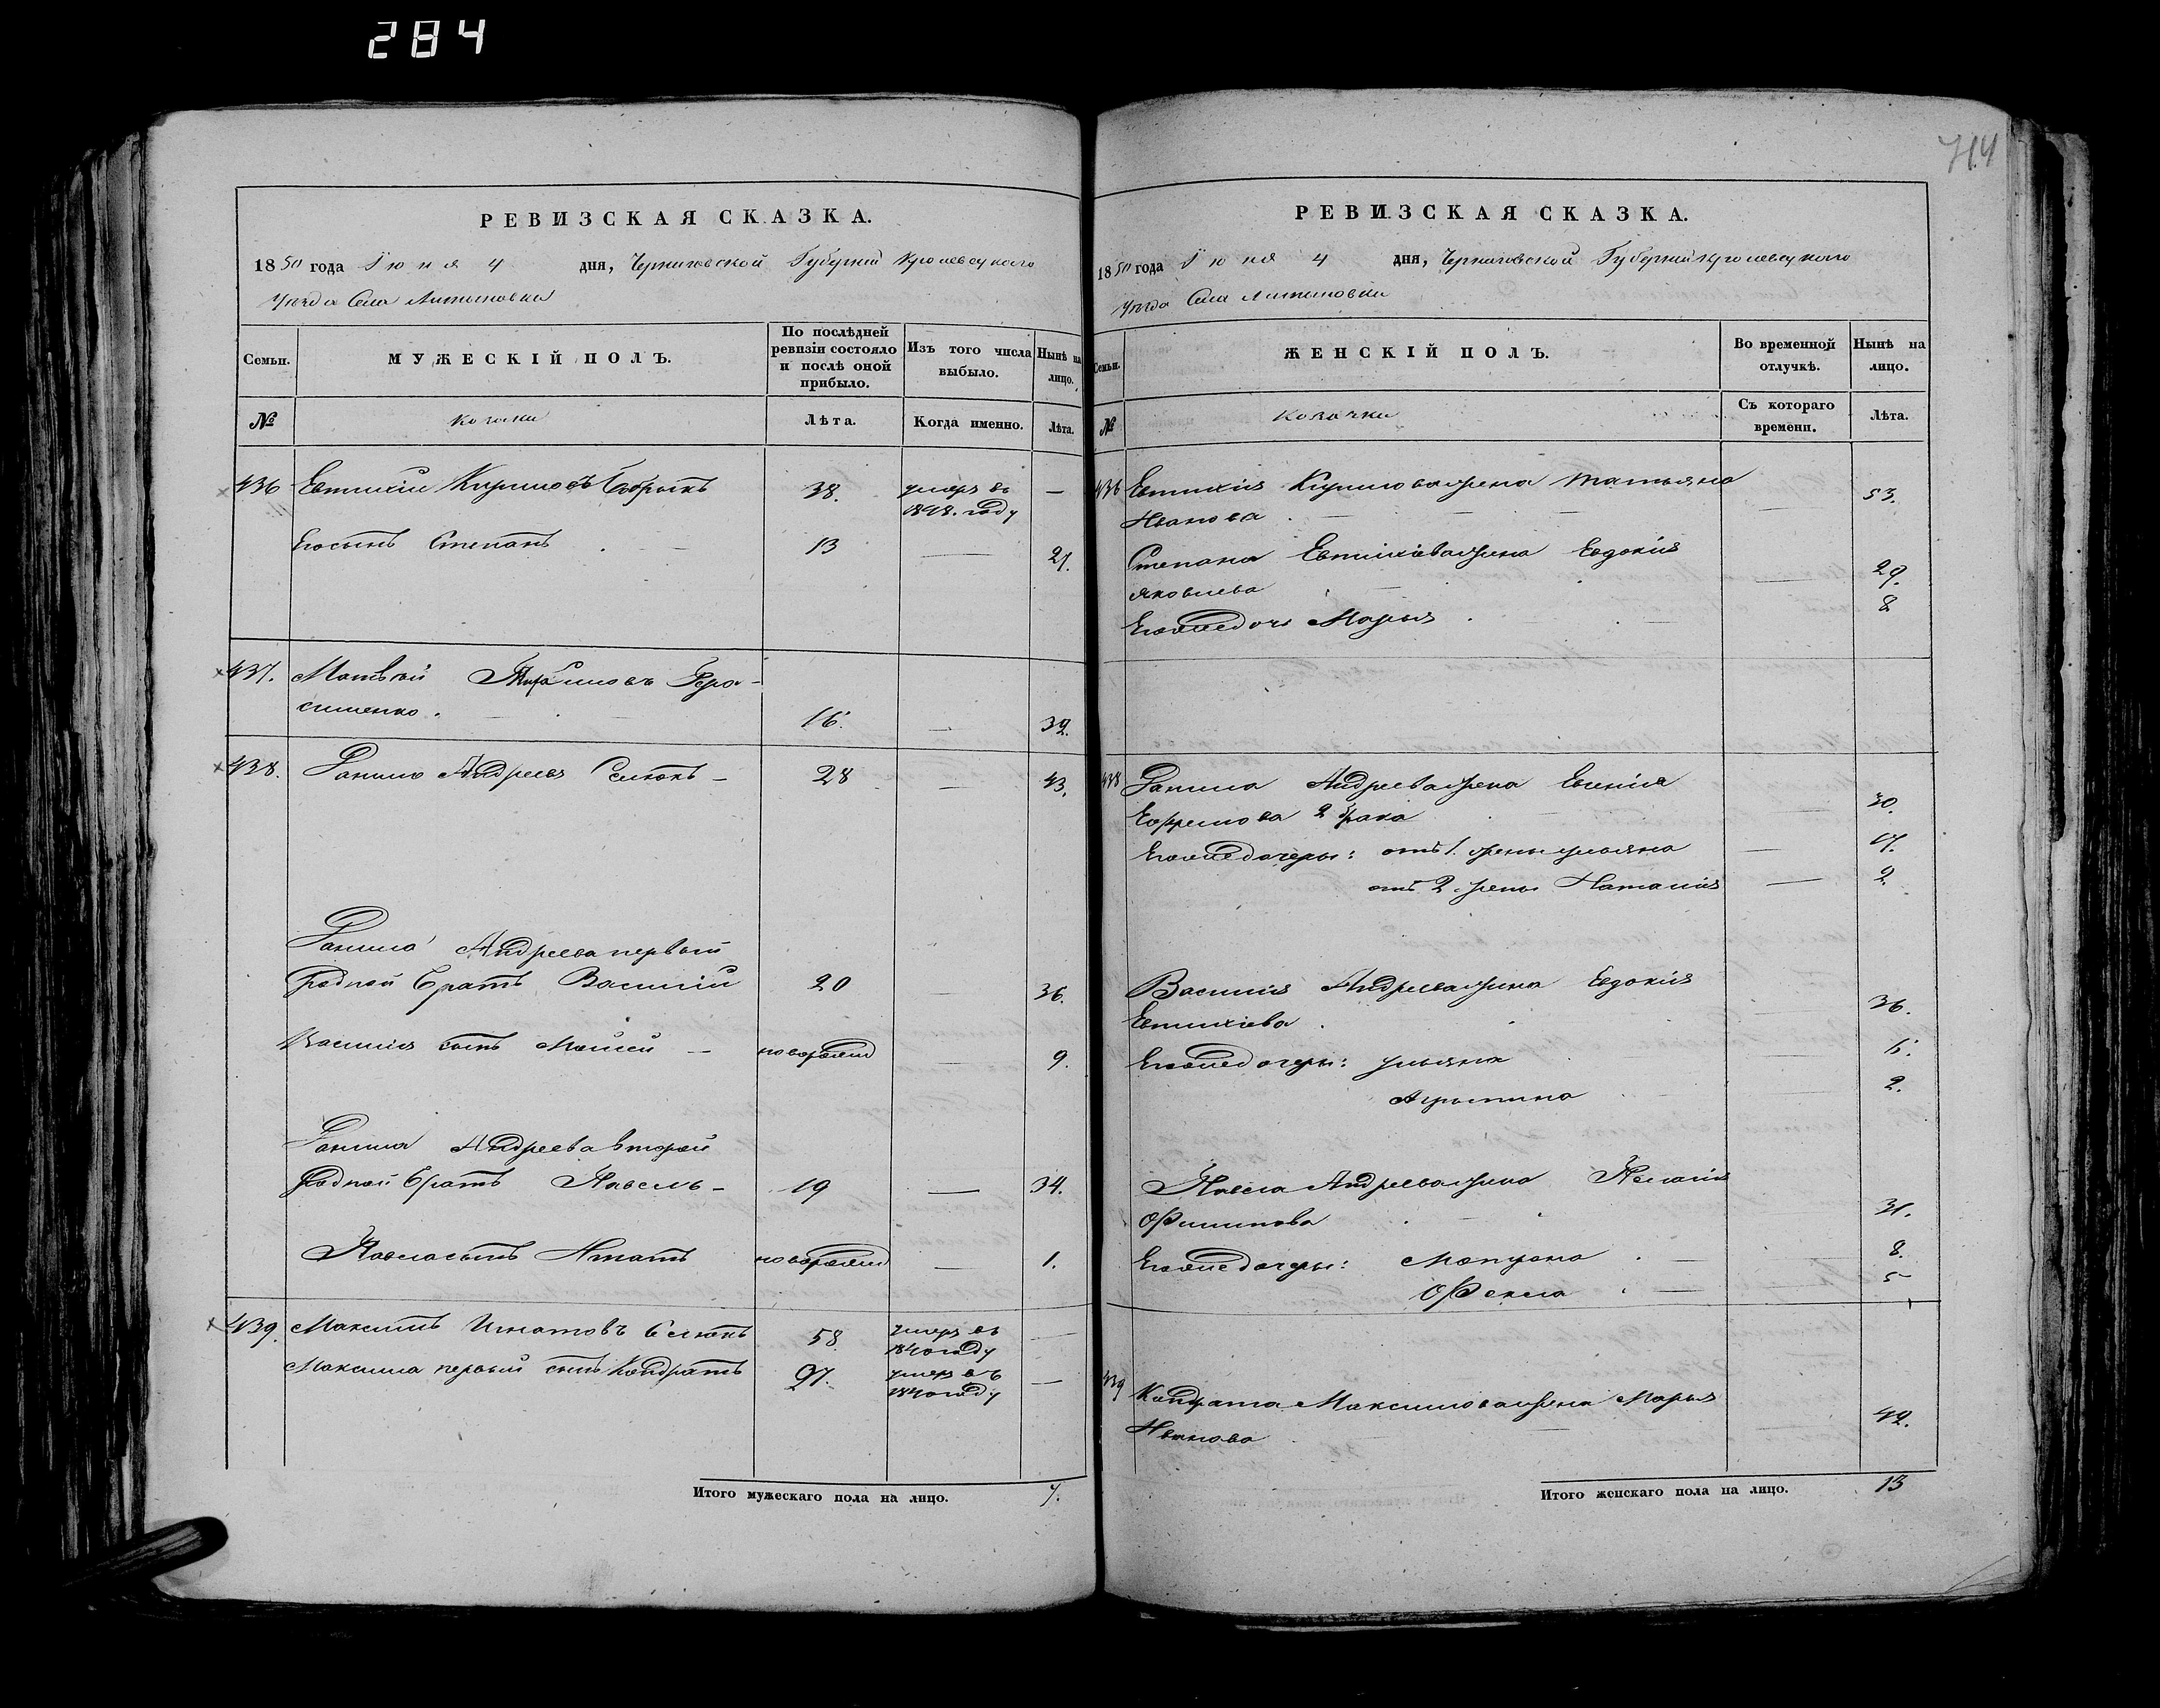 284
714
РЕВИЗСКАЯ СКАЗКА.
1850 года Іюня 4 дня, Черниговской Губерніи Кролевецкаго
Уѣзда Села Литвиновки
Семьи.
МУЖЕСКІЙ ПОЛЪ.
По послѣдней ревизіи состояло и послѣ оной прибыло.
Изъ того числа выбыло.
Нынѣ на лицо.
№
козаки
Лѣта.
Когда именно.
Лѣта.
436 Евтихій Кириловъ 38. умеръ въ 1848. году —
Егосынъ Степанъ 13 —
437. Матвѣй Гера-
сименко. 16. — 32.
438. Данило Андреевъ 28 — 43.
Данила Андреева первый
родной братъ Василій 20 — 36.
Василія сынъ Моисей — новорожден — 9.
Данила Андреева второй
родной братъ Павелъ — 19 — 34.
Павла сынъ Игнатъ новорожден — 1.
439. Максимъ Игнатовъ 58. умеръ въ 1840 году —
Максима первый сынъ Кондратъ 27. умеръ въ 1840 году —
Итого мужескаго пола на лицо. 7.
РЕВИЗСКАЯ СКАЗКА.
1850 года Іюня 4 дня, Черниговской Губерніи Кролевецкаго
Уѣзда Села Литвиновки
Семьи.
ЖЕНСКІЙ ПОЛЪ.
Во временной отлучкѣ.
Нынѣ на лицо.
№
козачки
Съ котораго времени.
Лѣта.
436 Евтихія Кирилова жена Татьяна
Иванова — 53.
Степана Евтихіева жена Евдокія
Яковлева — 29.
Егожедочь Марья 8
438 Данила Андреева жена Евгенія
Ефремова 2 брака — 30.
Егожедочери: отъ 1. жены Ульяна — 17.
отъ 2 жены Наталія — 2.
Василія Андреева жена Евдокія
Евтихіева — 36.
Егожедочери: Ульяна 15.
2.
Павла Андреева жена Пелагія
Филипова 31.
Егожедочери: Матрона 8.
Фекла 5
439 Кондрата Максимова жена Марья
Иванова — 42.
Итого женскаго пола на лицо. 13